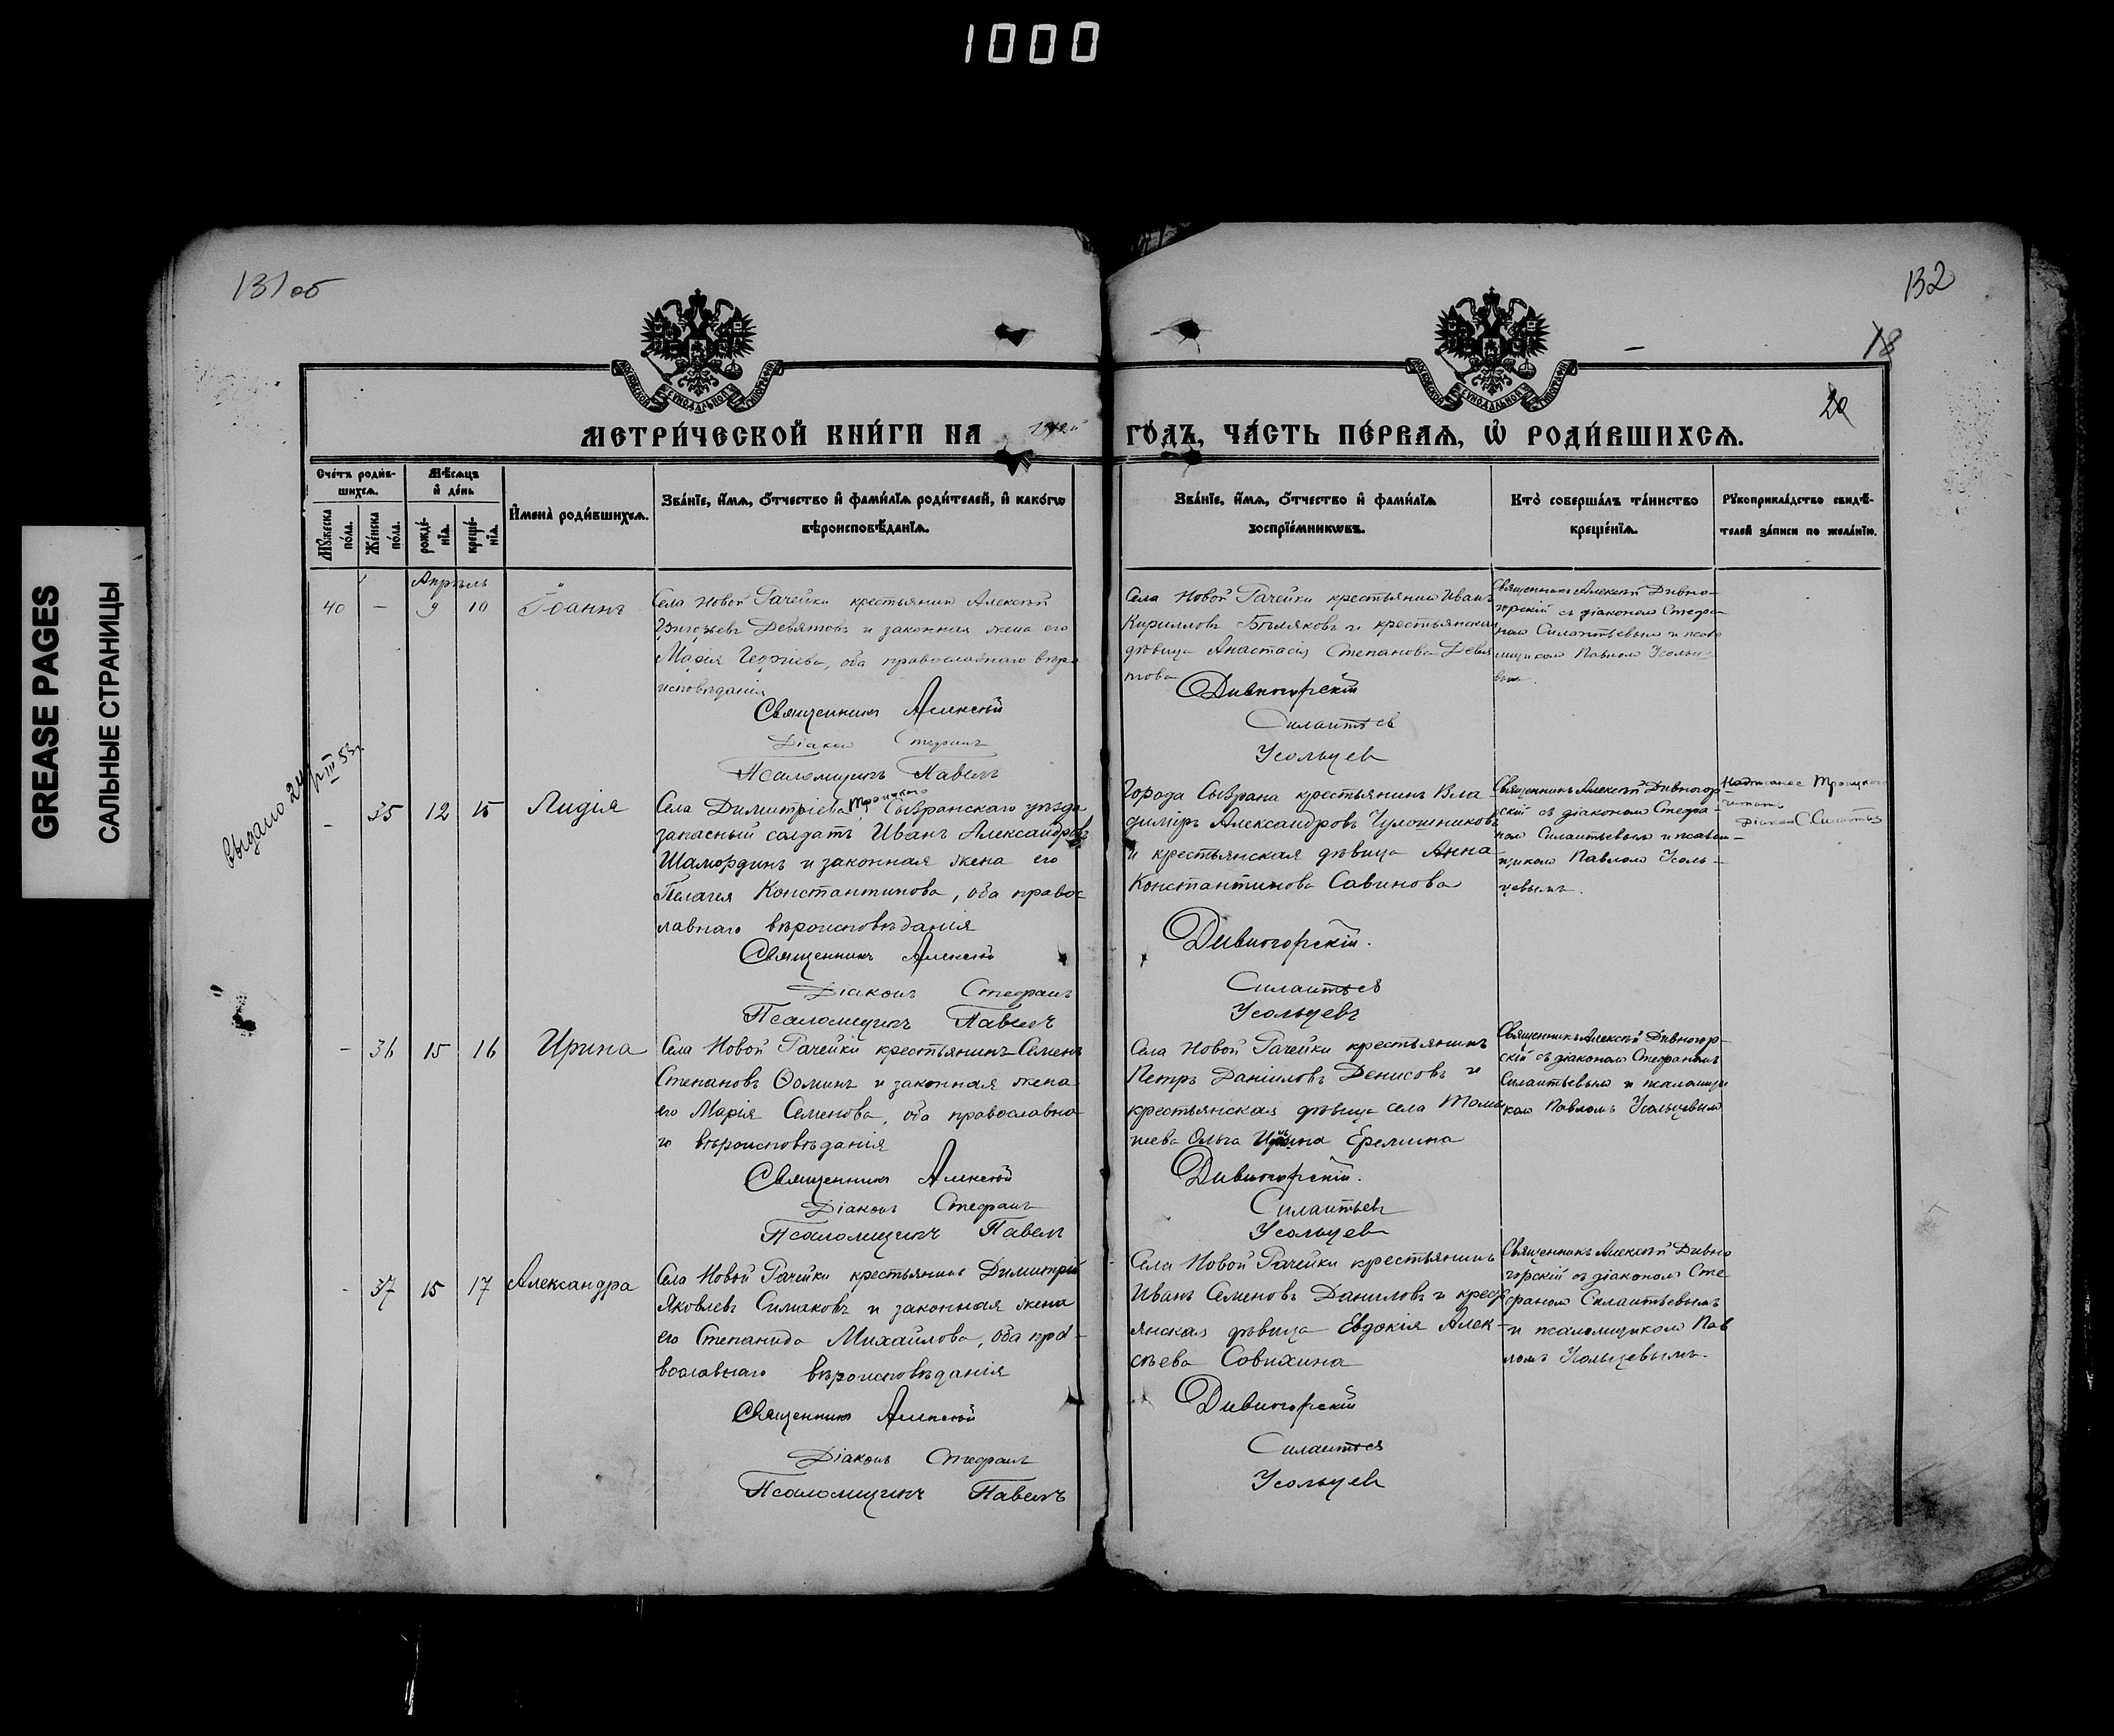 1000
GREASE PAGES
САЛЬНЫЕ СТРАНИЦЫ
131 об
132
18
20
МОСКОВСКОЙ СУНОДАЛЬНОЙ ТИПОГРАФІИ
МОСКОВСКОЙ СУНОДАЛЬНОЙ ТИПОГРАФІИ
МЕТРИ́ЧЕСКОЙ КНИ́ГИ НА
ГО́ДЪ, ЧА́СТЬ ПЕ́РВАѦ, Ѡ РОДИ́ВШИХСѦ.
Сче́тъ роди́в-
шихсѧ.
Мꙋ́жеска по́ла.
Же́нска по́ла.
Мѣ́сѧцъ
и҆ де́нь
рожде́-нїѧ.
креще́-нїѧ.
И҆мена̀ роди́вшихсѧ.
Зва́нїе, и҆́мѧ, ѻ҆́тчество и҆ фами́лїѧ роди́телей, и҆ како́гѡ
вѣроисповѣ́данїѧ.
Зва́нїе, и҆́мѧ, ѻ҆́тчество и҆ фами́лїѧ
воспрїе́мникѡвъ.
Кто̀ соверша́лъ та́инство
креще́нїѧ.
Рꙋкоприкла́дство свидѣ́-
телей за́писи по жела́нїю.
Апрѣль
40 - 9 10 Іоаннъ
Села Новой Рачейки крестьянин Алексѣй
Григорьевъ Девятовъ и законная жена его
Марія Георгіева, оба православнаго вѣро-
исповѣданія
Священникъ Алексѣй
Діаконъ Стефанъ
Псаломщикъ Павелъ
Села Новой Рачейки крестьянин Иванъ
Кирилловъ Бѣляковъ и крестьянская
дѣвица Анастасія Степанова Девя
това
Дивногорскій
Силантьев
Усольцев
Священникъ Алексѣй Дивно-
горскій съ діаконом Стефа-
ном Силантьевым и псало
мщиком Павлом Усольц-
вым.
Выдано 24/III 53г.
- 35 12 15 Лидія
Села Димитріева Троицкого Сызранскаго уѣзда
запасный солдатъ Иванъ Александровъ
Шамординъ и законная жена его
Пелагея Константинова, оба правос-
лавнаго вѣроисповѣданія
Священникъ Алексѣй
Діаконъ Стефанъ
Псаломщикъ Павелъ
Города Сызрана крестьянинъ Вла-
димиръ Александровъ Чулошниковъ
и крестьянская дѣвица Анна
Константинова Савинова
Дивногорскій.
Силантьев
Усольцевъ
Священникъ Алексѣй Дивногор-
скій съ діаконом Стефа-
ном Силантьевым и псалом-
щиком Павлом Усоль-
цевымъ.
Надписанное Троицкого
читать
Діакон С Силантьев
- 36 15 16 Ирина
Села Новой Рачейки крестьянинъ Семенъ
Степановъ Ѳоминъ и законная жена
его Марія Семенова, оба православна-
го вѣроисповѣданія
Священникъ Алексѣй
Діаконъ Стефанъ
Псаломщикъ Павелъ
Села Новой Рачейки крестьянинъ
Петръ Даніиловъ Денисовъ и
крестьянская дѣвица села Томы
шева Ольга Еремина
Дивногорскій.
Силантьевъ
Усольцев
Священникъ Алексѣй Дивногор-
скій съ діаконом Стефаномъ
Силантьевым и псаломщи
ком Павломъ Усольцевым
- 37 15 17 Александра
Села Новой Рачейки крестьянинъ Димитрій
Яковлевъ Симаковъ и законная жена
его Степанида Михайлова, оба пра-
вославнаго вѣроисповѣданія
Священникъ Алексѣй
Діаконъ Стефанъ
Псаломщикъ Павелъ
Села Новой Рачейки крестьянинъ
Иванъ Семеновъ Даниловъ и крест
янская дѣвица Евдокія Алек-
сѣева Совихина
Дивногорскій
Силантьев
Усольцев
Священникъ Алексѣй Дивно
горскій съ діаконом Сте
фаном Силантьевымъ
и псаломщиком Пав
ломъ Усольцевымъ.